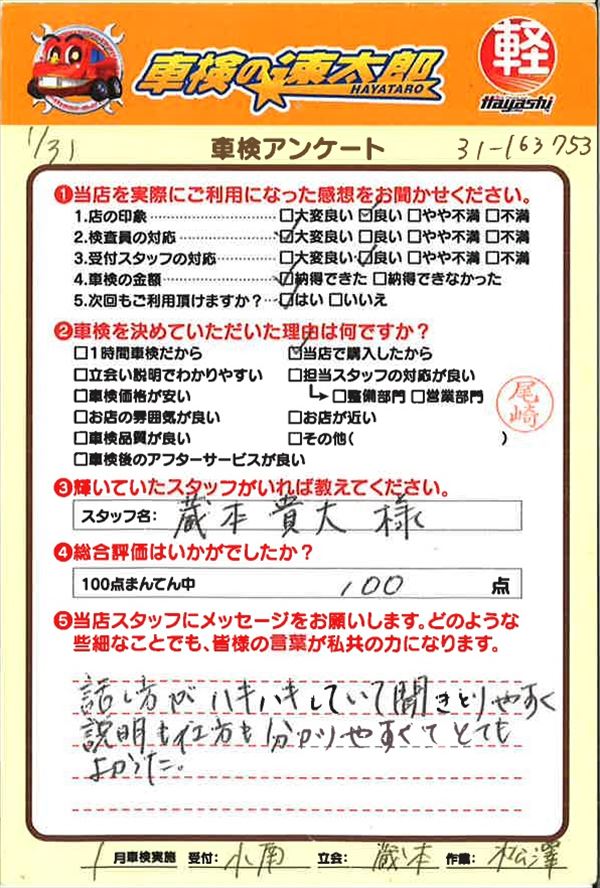 車検の速太郎
HAYATARO
軽
Hayashi
1/31 車検アンケート 31-163753
❶当店を実際にご利用になった感想をお聞かせください。
1.店の印象 □大変良い ☑良い □やや不満 □不満
2.検査員の対応 ☑大変良い □良い □やや不満 □不満
3.受付スタッフの対応 □大変良い ☑良い □やや不満 □不満
4.車検の金額 ☑納得できた □納得できなかった
5.次回もご利用頂けますか? ☑はい □いいえ
❷車検を決めていただいた理由は何ですか?
□1時間車検だから ☑当店で購入したから
□立会い説明でわかりやすい □担当スタッフの対応が良い
□車検価格が安い □整備部門 □営業部門
尾崎
□お店の雰囲気が良い □お店が近い
□車検品質が良い □その他( )
□車検後のアフターサービスが良い
❸輝いていたスタッフがいれば教えてください。
スタッフ名: 蔵本 貴大 様
❹総合評価はいかがでしたか?
100点まんてん中 100 点
❺当店スタッフにメッセージをお願いします。どのような
些細なことでも、皆様の言葉が私共の力になります。
話し方がハキハキしていて聞きとりやすく
説明も仕方も分かりやすくてとても
よかった。
1月車検実施 受付: 小南 立会: 蔵本 作業: 松澤